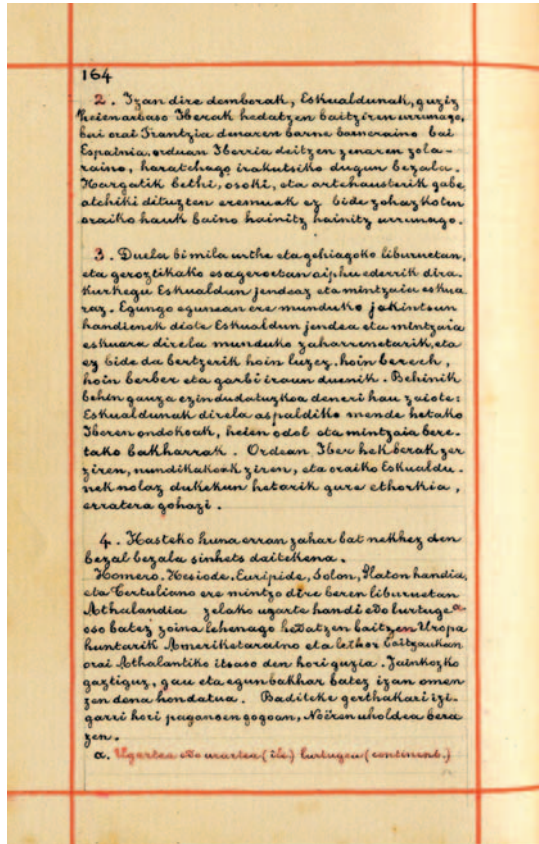 164
2. Izan dire demborak, Eskualdunak, guziz
heien arbaso Iberak hedatzen baitziren urrunago,
bai orai Frantzia denaren barne barneraino bai
Espainia, orduan Iberria deitzen zenaren zola-
raino, haratchago irakutsiko dugun bezala.
Hargatik bethi, osoki, eta artehausterik gabe,
atchiki dituzten eremuak ez bide zohazkoten
oraiko hauk baino hainitz hainitz urrunago.
3. Duela bi mila urthe eta gehiagoko liburuetan,
eta geroztikako esageroetan aiphu ederrik dira-
kurkegu Eskualdun jendeaz eta mintzaia eskua
raz. Egungo egunean ere munduko jakintsun
handienek diote Eskualdun jendea eta mintzaia
eskuara direla munduko zaharrenetarik, eta
ez bide da bertzerik hoin luzez, hoin berech,
hoin berber eta garbi iraun duenik. Behinik
behin gauza ezindudatuzkoa deneri hau zaiote:
Eskualdunak direla aspaldiko mende hetako
Iberen ondokoak, heien odol eta mintzaia bere-
tako bakharrak. Ordean Iber hek berak zer
ziren, nundikakoak ziren, eta oraiko Eskualdu-
nek nolaz dukekun hetarik gure ethorkia,
erratera gohazi.
4. Hasteko huna erran zahar bat nekhez den
bezal bezala sinhets daitekena.
Homero. Hesiode. Euripide, Solon, Platon handia,
eta Tertuliano ere mintzo dire beren liburuetan
Athalandia zelako ugarte handi edo lurtuge a
oso batez zoina lehenago hedatzen baitzen Uropa
huntarik Ameriketaraino eta lethor baitzaukan
orai Athalantiko itsaso den hori guzia. Jainkozko
gaztiguz, gau eta egun bakhar batez izan omen
zen dena hondatua. Baditeke gerthakari izi-
garri hori paganoen gogoan, Noëren uholdea bera
zen.
a. Ugartea edo urartea (île) lurtugea (continent.)